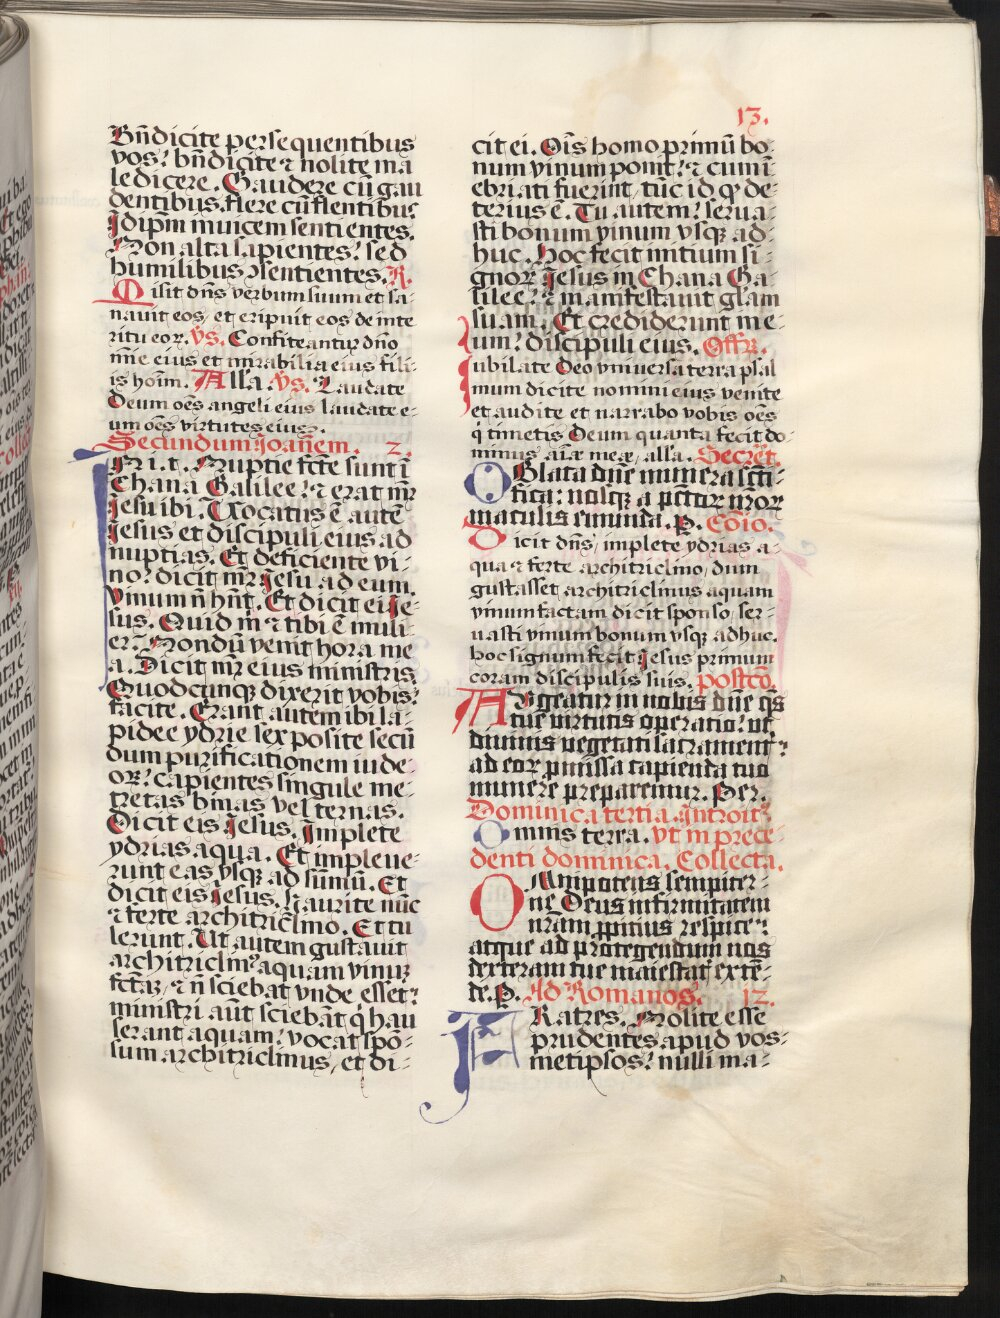 13.
Bn̄dicite persequentibus
vos: bn̄dicite ⁊ nolite ma
ledicere. Gaudere cū gau
dentibus. flere cū flentibus
Idip̄m inuicem sentientes.
Non alta sapientes: sed
humilibus ꝯsentientes. R.
Misit dn̄s verbum suum et sa-
nauit eos, et eripuit eos de inte
ritu eoꝝ. Vs. Confiteantur dn̄o
mīe eius et mirabilia eius fili-
is hoīm. Alla Vs. Laudate
Deum oēs angeli eius laudate e-
um oēs virtutes eius.
Secundum Joan̄em. 2.
IN i. t. Nuptie fc̄te sunt ī
Chana Galilee: ⁊ erat mr̄
Jesu ibi. Uocatus ē autē
Jesus et discipuli eius ad
nuptias. Et deficiente vi-
no: dicit mr̄ Jesu ad eum.
Vinum n̄ hn̄t. Et dicit ei Je-
sus. Quid m̄ ⁊ tibi ē muli-
er: Nondū venit hora me
a. Dicit mr̄ eius ministris.
Quodcunqꝫ dixerit vobis:
facite. Erant autem ibi la-
pidee ydrie sex posite secū
dum purificationem iude-
oꝝ: capientes singule me-
tretas binas vel ternas.
Dicit eis Jesus. Implete
ydrias aqua. Et impleue-
runt eas vsqꝫ ad sūmū. Et
dicit eis Jesus. Haurite nūc
⁊ ferte architricl̄mo. Et tu
lerunt. Ut autem gustauit
architriclin⁹ aquam vinuꝫ
fctāꝫ, ⁊ n̄ sciebat vnde esset:
ministri aūt sciebāt q̇ hau
serant aquam: vocat spō-
sum architriclinus, et di-
cit ei. Oīs homo primū bo-
num vinum ponit: ⁊ cum ī
ebriati fuerint, tūc id qꝫ de-
terius ē. Tu autem: serua-
sti bonum vinum vsqꝫ ad-
huc. Hoc fecit initium si-
gnoꝝ Jesus in Chana Ga-
lilee: ⁊ manifestauit glam
suam. Et crediderunt in e-
um: discipuli eius. Offr.
Iubilate Deo vniuersa terra psal
mum dicite nomini eius venite
et audite et narrabo vobis oēs
q̇ timetis Deum quanta fecit do-
minus aīæ meæ, alla. Secret̄.
OBlata dn̄e munera sc̄ti-
fica: nosqꝫ a pc̄toꝝ nr̄oꝝ
maculis emunda. P. Cōio.
Dicit dn̄s, implete ydrias a-
qua ⁊ ferte architriclino, dum
gustasset architriclinus aquam
vinum factam dicit sponso ser-
uasti vinum bonum vsqꝫ adhuc.
hoc signum fecit Jesus primum
coram discipulis suis. postcō.
AUgeatur in nobis dn̄e q̄s
tue virtutis operatio: ut
diuinis vegetati sacrament̄:
ad eoꝝ p̄missa capienda tuo
munere preparemur. Per.
Dominica tertia. Introit⁹
Omnis terra. vt in prece-
denti dominica. Collecta.
OMnipotens sempiter-
ne Deus infirmitatem
nr̄am ꝓpitius respice:
atque ad protegendum nos
dexteram tue maiestat̄ extē-
de. P. Ad Romanos. 12.
FRatres. Nolite esse
prudentes apud vos-
metipsos: nulli ma-